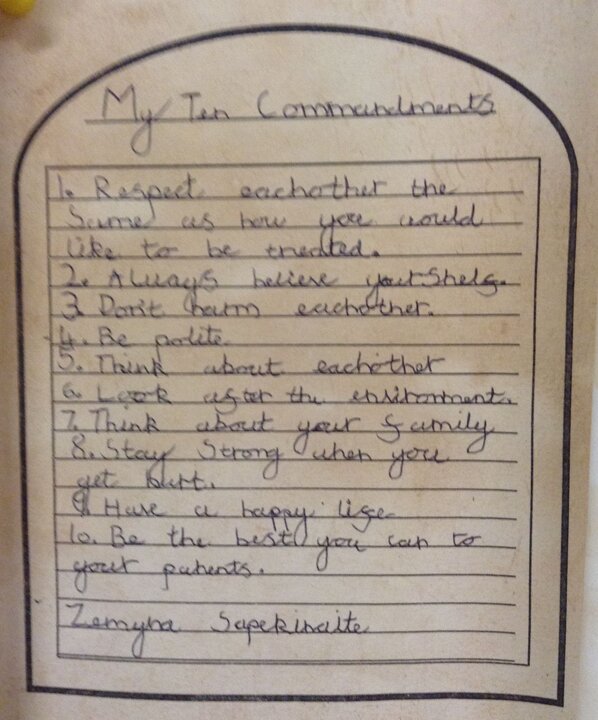 My Ten Commandments
1. Respect eachother the
Same as how you would
like to be treated.
2. Always believe
3. Don't harm eachother.
4. Be polite
5. Think about eachother
6. Look after the environment.
7. Think about your family
8. Stay Strong when you
get hurt.
9. Have a happy life
10. Be the best you can to
your parents.
Zemyna Sapekinaite